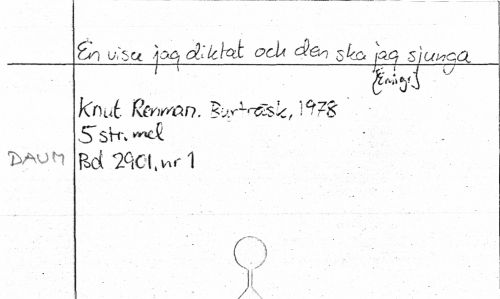 En visa jag diktat och den ska jag sjunga
Knut Renman. Burträsk, 1978
5 str. mel
DAUM Bd 2901, nr 1